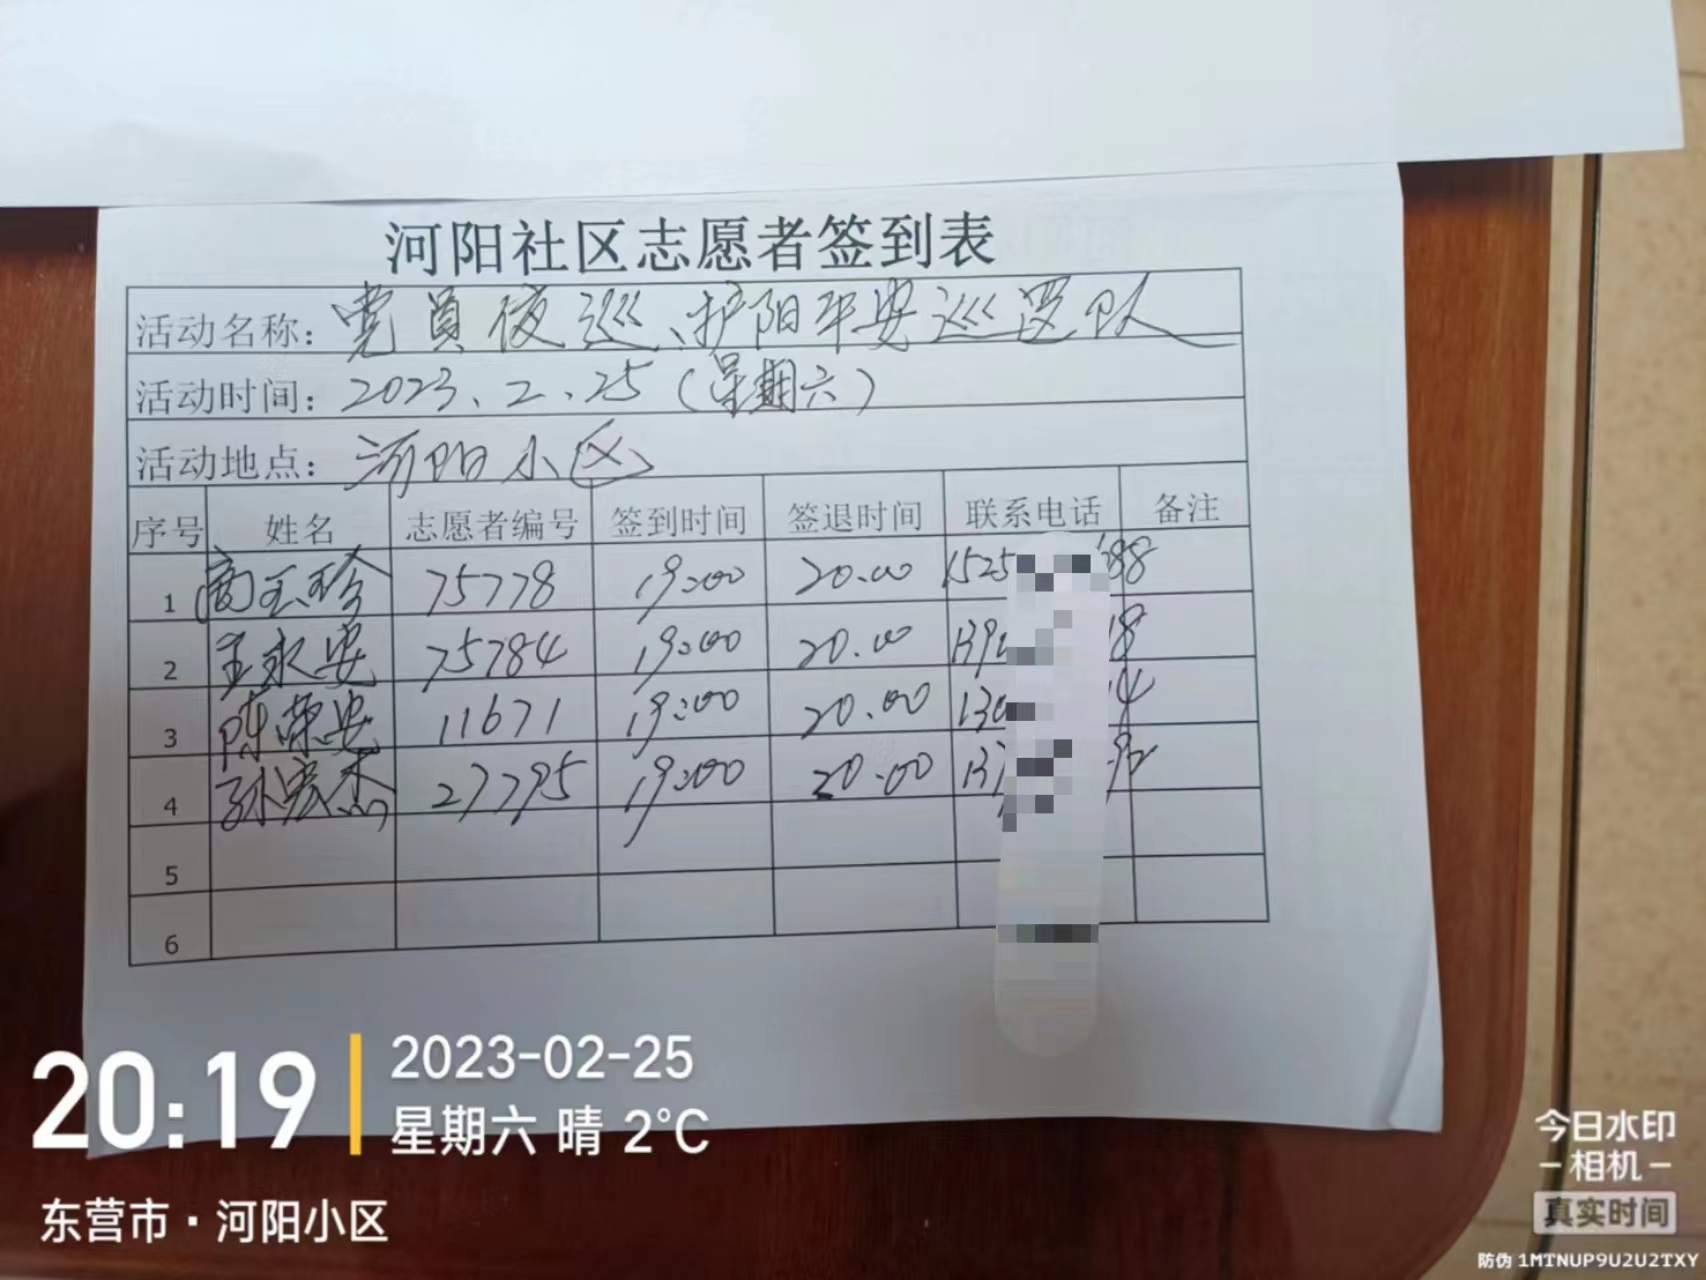 河阳社区志愿者签到表
活动名称：党员夜巡、护阳平安巡逻队
活动时间：2023、2、25（星期六）
活动地点：河阳小区
序号 姓名 志愿者编号 签到时间 签退时间 联系电话 备注
1 商玉珍 75778 19:00 20:00 1525 88
2 王永安 75784 19:00 20:00 139 18
3 陈荣安 11671 19:00 20:00 130 14
4 孙宏杰 27795 19:00 20:00 137 92
5
6
20:19
2023-02-25
星期六 晴 2°C
东营市·河阳小区
今日水印
相机
真实时间
防伪 1MTNUP9U2U2TXY